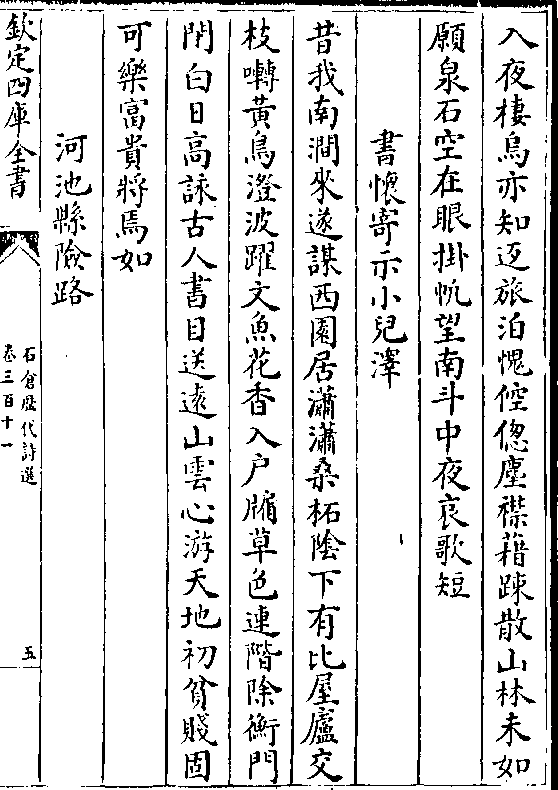 入夜棲烏亦知返旅泊愧倥傯塵襟藉踈散山林未如
願泉石空在眼掛帆望南斗中夜哀歌短
書懷寄示小兒澤
昔我南澗來遂謀西園居瀟瀟桑柘陰下有比屋廬交
枝囀黃鳥澄波躍文魚花香入户牖草色連階除衡門
閉白日高詠古人書目送遠山雲心游天地初貧賤固
可樂富貴將焉如
河池縣險路
欽定四庫全書
石倉歷代詩選
卷三百十一
五